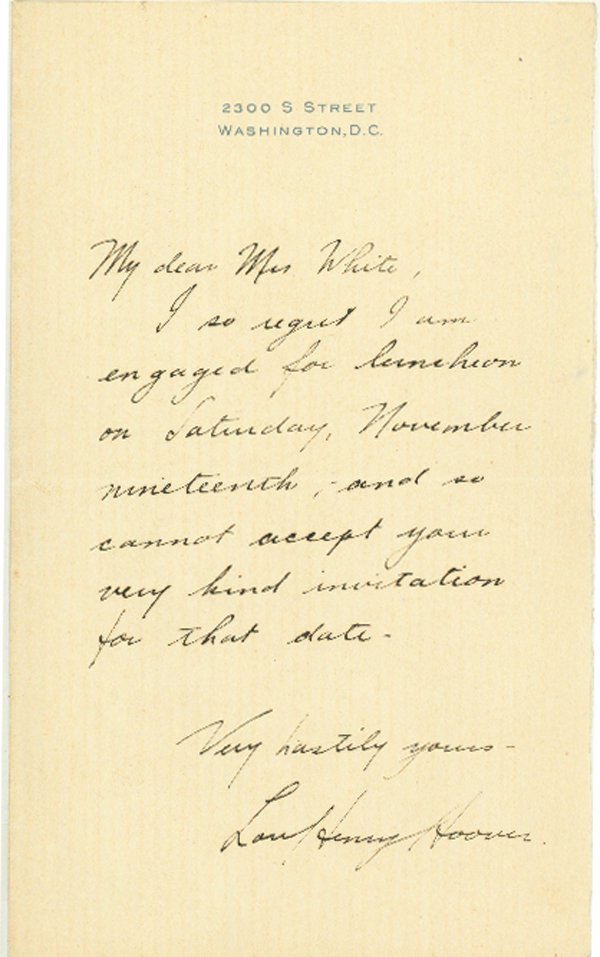 2300 S STREET
WASHINGTON, D.C.
My dear Mrs White,
I so regret I am
engaged for luncheon
on Saturday, November
nineteenth, - and so
cannot accept your
very kind invitation
for that date -
Very hastily yours -
Lou Henry Hoover.